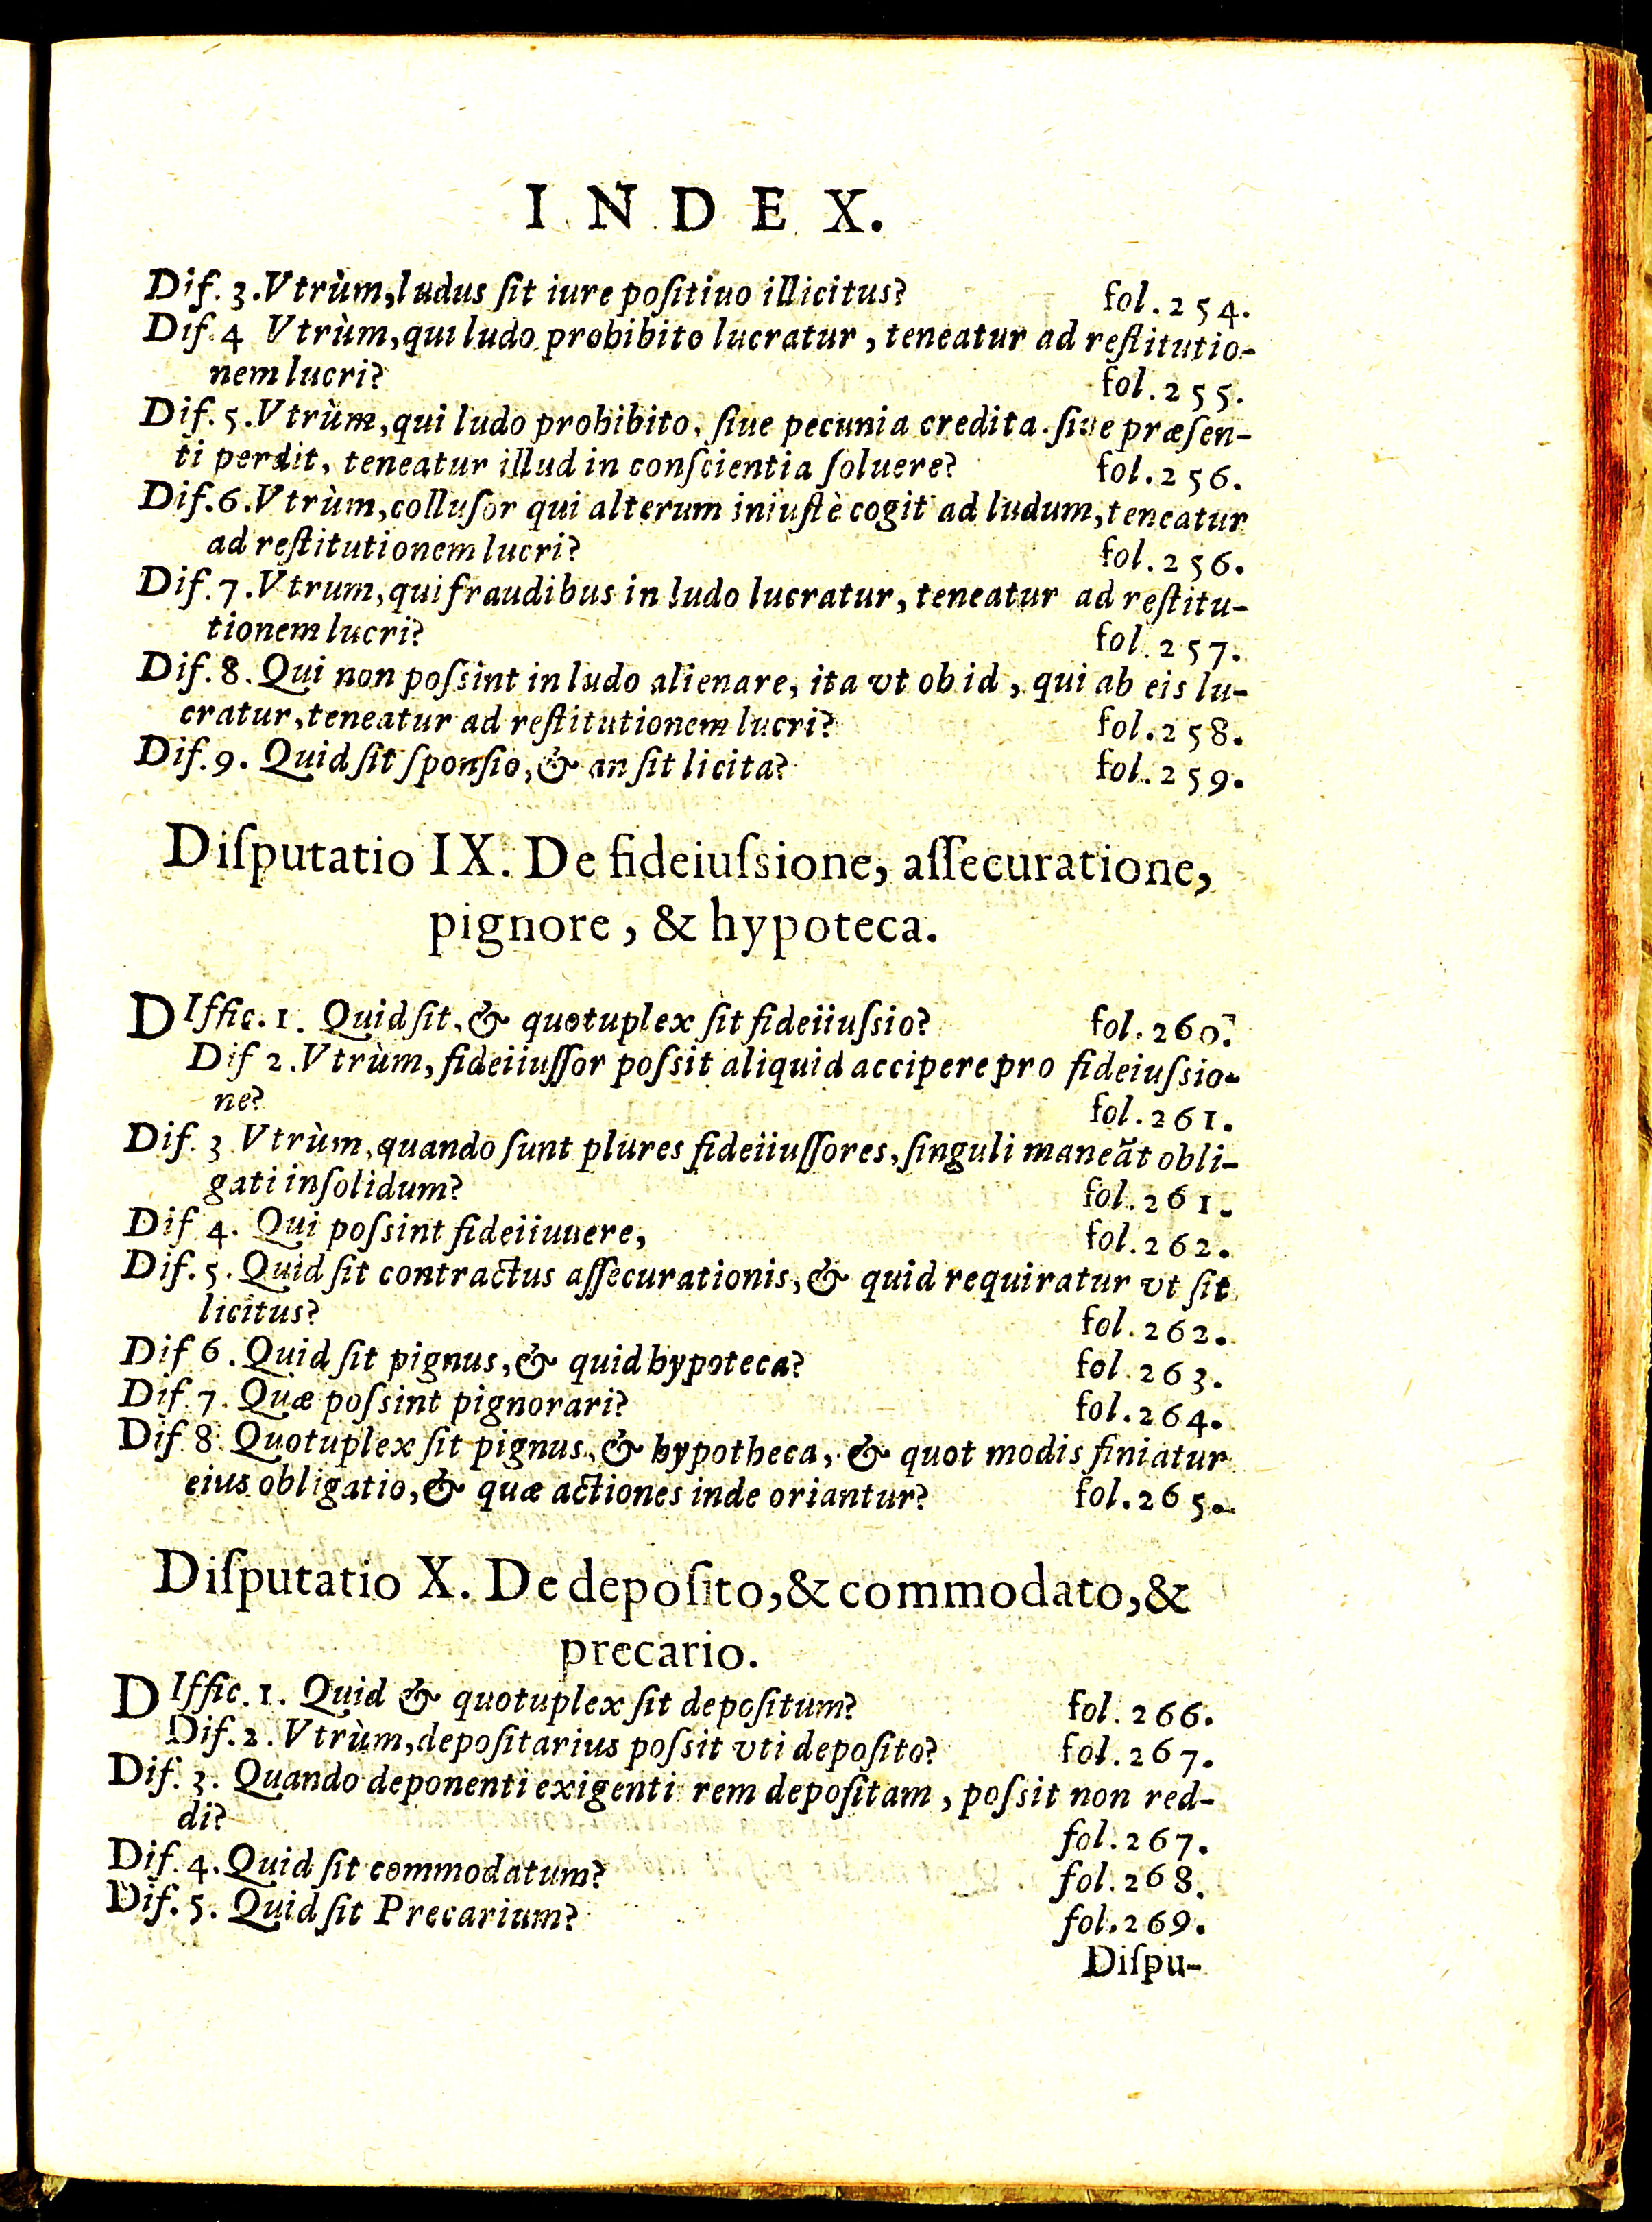 INDEX.
Diſ. 3. Vtrùm, ludus ſit iure poſitiuo illicitus? fol. 254.
Diſ. 4 Vtrùm, qui ludo prohibito lucratur, teneatur ad reſtitutio-
nem lucri? fol. 255.
Diſ. 5. Vtrùm, qui ludo prohibito, ſiue pecunia credita. ſiue præſen-
ti perdit, teneatur illud in conſcientia ſoluere? fol. 256.
Diſ. 6. Vtrùm, colluſor qui alterum iniuſtè cogit ad ludum, teneatur
ad reſtitutionem lucri? fol. 256.
Diſ. 7. Vtrum, qui fraudibus in ludo lucratur, teneatur ad reſtitu-
tionem lucri? fol. 257.
Diſ. 8. Qui non poſsint in ludo alienare, ita vt ob id, qui ab eis lu-
cratur, teneatur ad reſtitutionem lucri? fol. 258.
Diſ. 9. Quid ſit ſponſio, & an ſit licita? fol. 259.
Diſputatio IX. De fideiuſsione, aſſecuratione,
pignore, & hypoteca.
DIffic. 1. Quid ſit, & quotuplex ſit fideiiuſsio? fol. 260.
Diſ 2. Vtrùm, fideiiuſſor poſsit aliquid accipere pro fideiuſsio-
ne? fol. 261.
Diſ. 3 Vtrùm, quando ſunt plures fideiiuſſores, ſinguli maneãt obli-
gati inſolidum? fol. 261.
Diſ 4. Qui poſsint fideiiuuere, fol. 262.
Diſ. 5. Quid ſit contractus aſſecurationis, & quid requiratur vt ſit
licitus? fol. 262.
Diſ 6. Quid ſit pignus, & quid hypoteca? fol. 263.
Diſ. 7. Quæ poſsint pignorari? fol. 264.
Diſ. 8. Quotuplex ſit pignus, & hypotheca, & quot modis finiatur
eius obligatio, & quæ actiones inde oriantur? fol. 265.
Diſputatio X. De depoſito, & commodato, &
precario.
DIffic. 1. Quid & quotuplex ſit depoſitum? fol. 266.
Diſ. 2. Vtrùm, depoſitarius poſsit vti depoſito? fol. 267.
Diſ. 3. Quando deponenti exigenti rem depoſitam, poſsit non red-
di? fol. 267.
Diſ. 4. Quid ſit commodatum? fol. 268.
Diſ. 5. Quid ſit Precarium? fol. 269.
Diſpu-